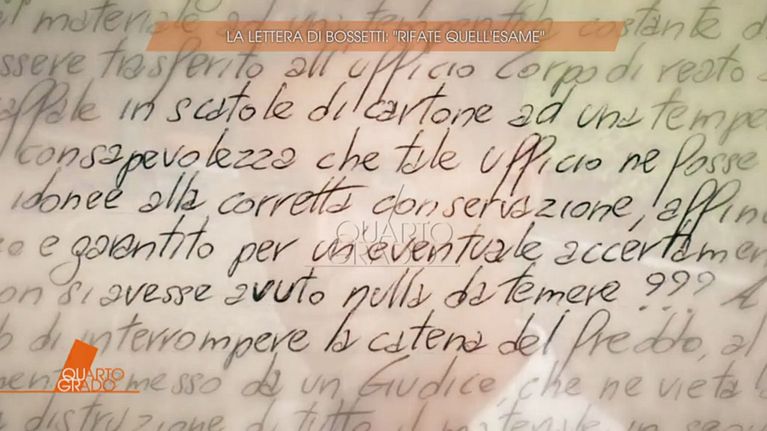 LA LETTERA DI BOSSETTI: "RIFATE QUELL'ESAME"
l materiale ad una temperatura costante d
ssere trasferito all'ufficio Corpo di reato a
in scatole di cartone ad una tempe
consapevolezza che tale ufficio ne fosse
idonee alla corretta conservazione, affin
e garantito per un eventuale accertamen
on si avesse avuto nulla da temere ???
di interrompere la catena del freddo, al
messo da un Giudice, che ne vieta l
distruzione di tutto il materiale in segu
QUARTO
GRADO
QUARTO
GRADO